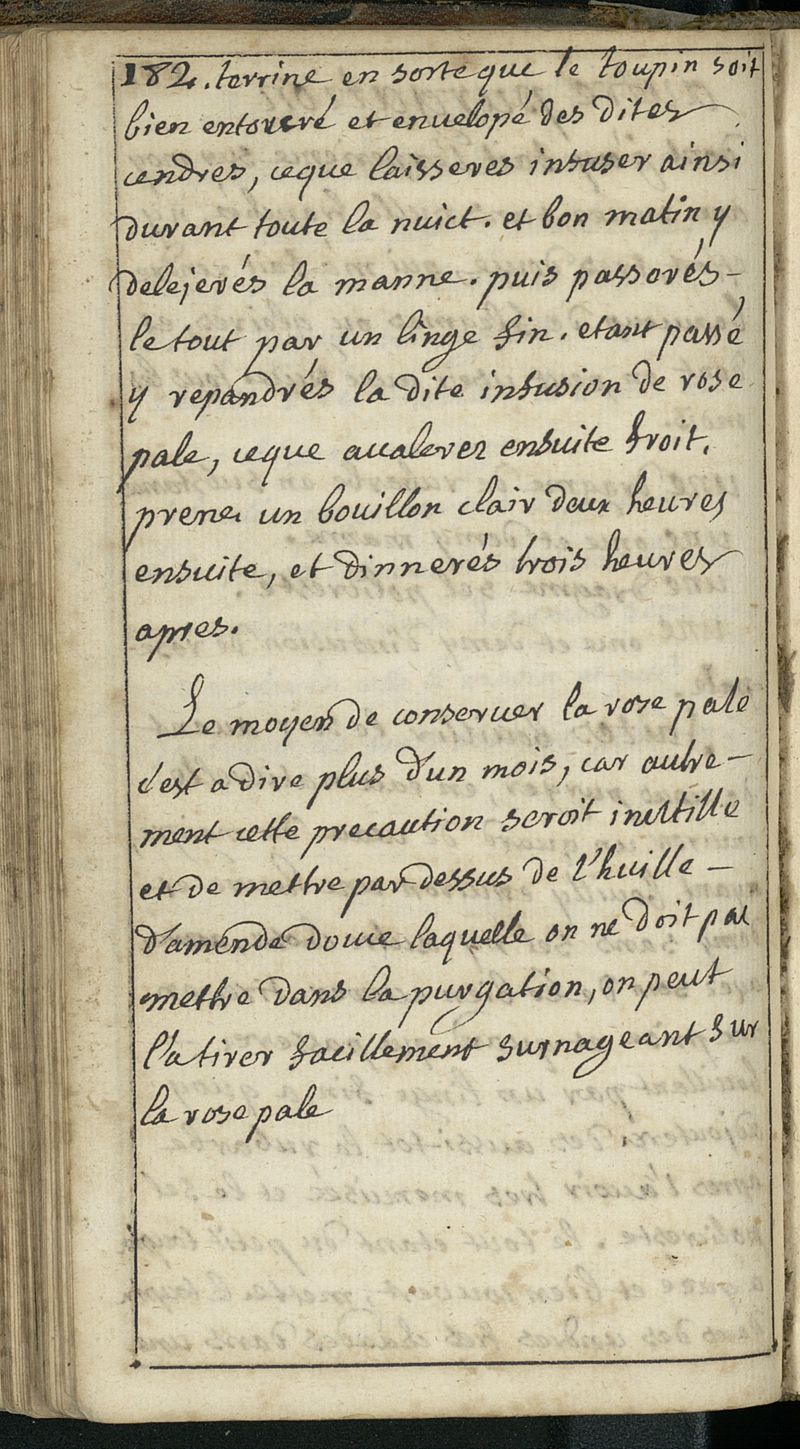 182. terrine en sorte que le toupin soit
bien entouré et envelopé des dites
cendres, ceque laisseres infuser ainsi
durant toute la nuict. et bon matin y
delejerés la manne. puis passerés –
le tout par un linge fin. etant passé
y repandrés la dite infusion de rose
pale, ceque avalerez ensuite froit.
prenez un bouillon clair deux heures
ensuite, et dinnerés trois heures
apres.
Le moyen de conserver la rose pale
c'est a dire plus d'un mois, car autre –
ment cette precaution seroit inutille
et de mettre par dessus de l'huille –
d'amende douce laquelle on ne doit pas
mettre dans la purgation, on peut
l'a tirer facillement surnageant sur
la rose pale